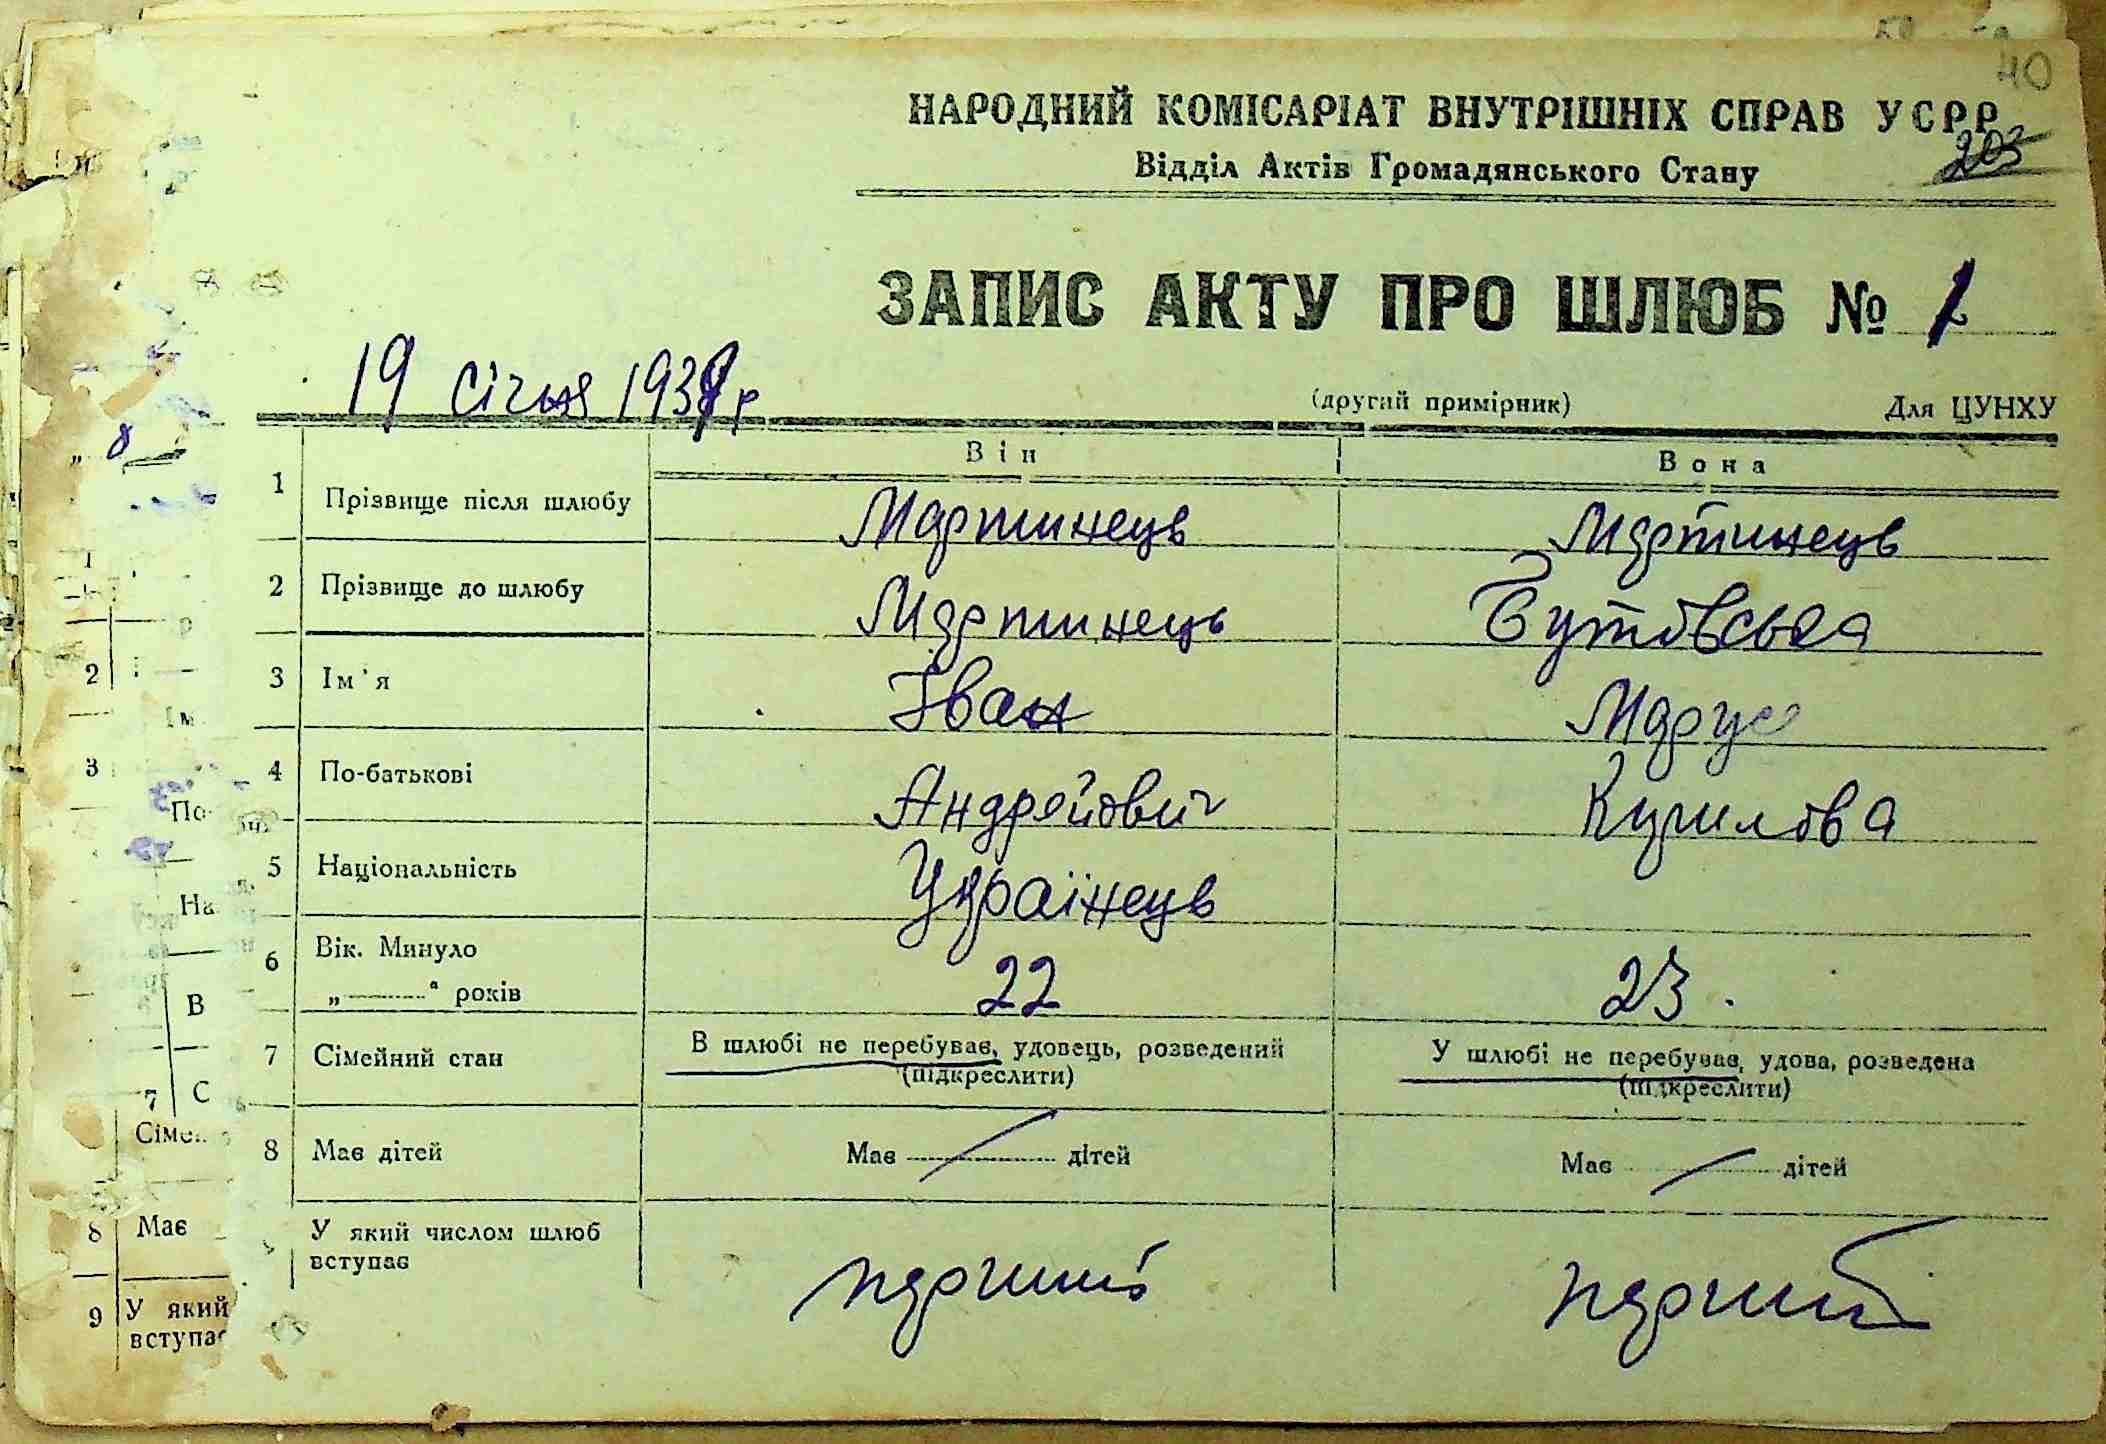 40
НАРОДНИЙ КОМІСАРІАТ ВНУТРІШНІХ СПРАВ УСРР
203
Відділ Актів Громадянського Стану
ЗАПИС АКТУ ПРО ШЛЮБ №
19 січня 193 р
(другий примірник) Для ЦУНХУ
Він Вона
1 Прізвище після шлюбу Мартинець Мартинець
2 Прізвище до шлюбу Мартинець Бутовська
3 Ім'я Іван Маруся
4 По-батькові Андрейович Кирилова
5 Національність Українець
6 Вік. Минуло 22 23.
„ — “ років
7 Сімейний стан В шлюбі не перебував, удовець, розведений У шлюбі не перебував, удова, розведена
(підкреслити) (підкреслити)
8 Має дітей Має / дітей Має / дітей
У який числом шлюб перший перший
вступає
1
2
Ім
3
По-
На
В
7 С
Сімей
8 Має
9 У який
вступає